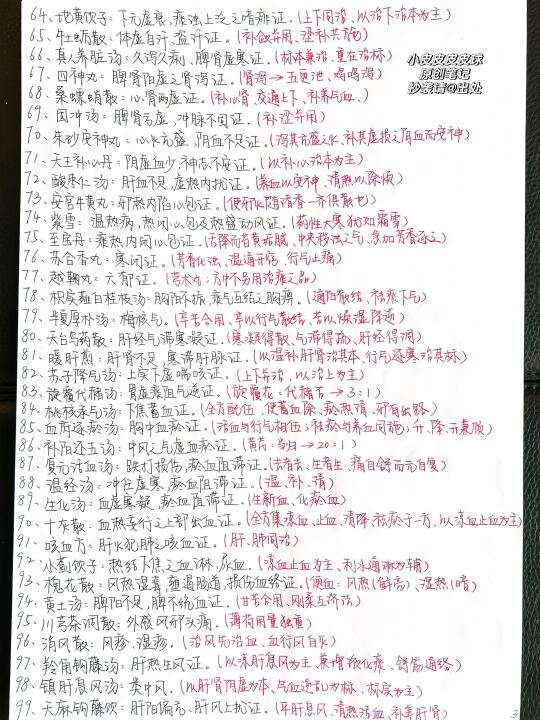 64. 地黄饮子：下元虚衰，痰浊上泛之喑痱证。(上下同治、以治下治本为主)
65. 牡蛎散：体虚自汗，盗汗证。(补敛并用、涩补共施)
66. 真人养脏汤：久泻久痢，脾肾虚寒证。(标本兼治、重在治标)
67. 四神丸：脾肾阳虚之肾泻证。(肾泻→五更泄、鸡鸣泻)
68. 桑螵蛸散：心肾两虚证。(补心肾、交通上下、补养气血、)
69. 固冲汤：脾肾亏虚，冲脉不固证。(补涩并用)
70. 朱砂安神丸：心火亢盛，阴血不足证。(泻其亢盛之火、补其虚损之阴血而安神)
71. 天王补心丹：阴虚血少，神志不安证。(以补心治本为主)
72. 酸枣仁汤：肝血不足，虚热内扰证。(养血以安神、清热以除烦)
73. 安宫牛黄丸：邪热内陷心包证。(使邪火随诸香一齐俱散也)
74. 紫雪：温热病，热闭心包及热盛动风证。(药性大寒犹如霜雪)
75. 至宝丹：痰热内闭心包证。
76. 苏合香丸：寒闭证。(芳香化浊、温通开窍、行气止痛)
77. 越鞠丸：六郁证。
78. 枳实薤白桂枝汤：胸阳不振，痰气互结之胸痹。(通阳散结、祛痰下气)
79. 半夏厚朴汤：梅核气。(辛苦合用、辛以行气散结、苦以燥湿降逆)
80. 天台乌药散：肝经气滞寒凝证。(寒凝得散、气滞得疏、肝经得调)
81. 暖肝煎：肝肾不足，寒滞肝脉证。(以温补肝肾治其本、行气逐寒治其标)
82. 苏子降气汤：上实下虚喘咳证。(上下并治、以治上为主)
83. 旋覆代赭汤：胃虚痰阻气逆证。(旋覆花：代赭石→3：1)
84. 桃核承气汤：下焦蓄血证。
85. 血府逐瘀汤：胸中血瘀证。(活血与行气相伍；祛瘀与养血同施；升、降、兼顾)
86. 补阳还五汤：中风之气虚血瘀证。(黄芪：当归→20：1)
87. 复元活血汤：跌打损伤，瘀血阻滞证。(去者去、生者生，痛自舒而元自复)
88. 温经汤：冲任虚寒，瘀血阻滞证。(温、补、清)
89. 生化汤：血虚寒凝，瘀血阻滞证。(生新血、化瘀血)
90. 十灰散：血热妄行之上部出血证。(全方集凉血、止血、清降、祛瘀于一方，以凉血止血为主)
91. 咳血方：肝火犯肺之咳血证。(肝、肺同治)
92. 小蓟饮子：热结下焦之血淋，尿血。(凉血止血为主、利水通淋为辅)
93. 槐花散：风热湿毒，壅遏肠道，损伤血络证。(便血：风热(鲜亮)、湿热(晦)
94. 黄土汤：脾阳不足，脾不统血证。(甘苦合用、刚柔互济法)
95. 川芎茶调散：外感风邪头痛。(薄荷用量独重)
96. 消风散：风疹、湿疹。(治风先治血、血行风自灭)
97. 羚角钩藤汤：肝热生风证。(以凉肝息风为主、兼增液化痰、舒筋通络)
98. 镇肝息风汤：类中风。(以肝肾阴虚为本、气血逆乱为标、标实为主)
99. 天麻钩藤饮：肝阳偏亢，肝风上扰证。(平肝息风、清热活血、补益肝肾)
小皮皮皮皮球
原创笔记
抄袭请@出处
3